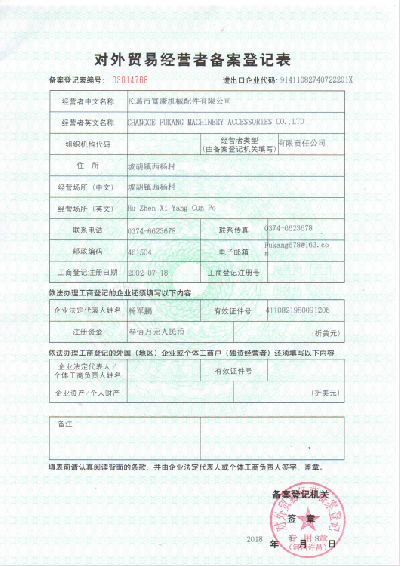 对外贸易经营者备案登记表
备案登记表编号:
进出口企业代码: 91411082740722221X
经营者中文名称 长葛市富康机械配件有限公司
经营者英文名称 CHANGGE FUKANG MACHINERY ACCESSORIES CO.,LTD
组织机构代码 经营者类型 有限责任公司
(由备案登记机关填写)
住 所 坡胡镇西杨村
经营场所(中文) 坡胡镇西杨村
经营场所(英文)
联系电话 0374-6623678 联系传真 0374-6623678
邮政编码 电子邮箱
工商登记注册日期 2002-07-18 工商登记注册号
依法办理工商登记的企业还须填写以下内容
企业法定代表人姓名 有效证件号
注册资金 (折美元)
依法办理工商登记的外国(地区)企业或个体工商户(独资经营者)还须填写以下内容
企业法定代表人/ 有效证件号
个体工商负责人姓名
企业资产/个人财产 (折美元)
备注
填表前请认真阅读背面的条款,并由企业法定代表人或个体工商负责人签字、盖章。
备案登记机关
签 章
对外贸易经营者备案登记
2018 年 月 日